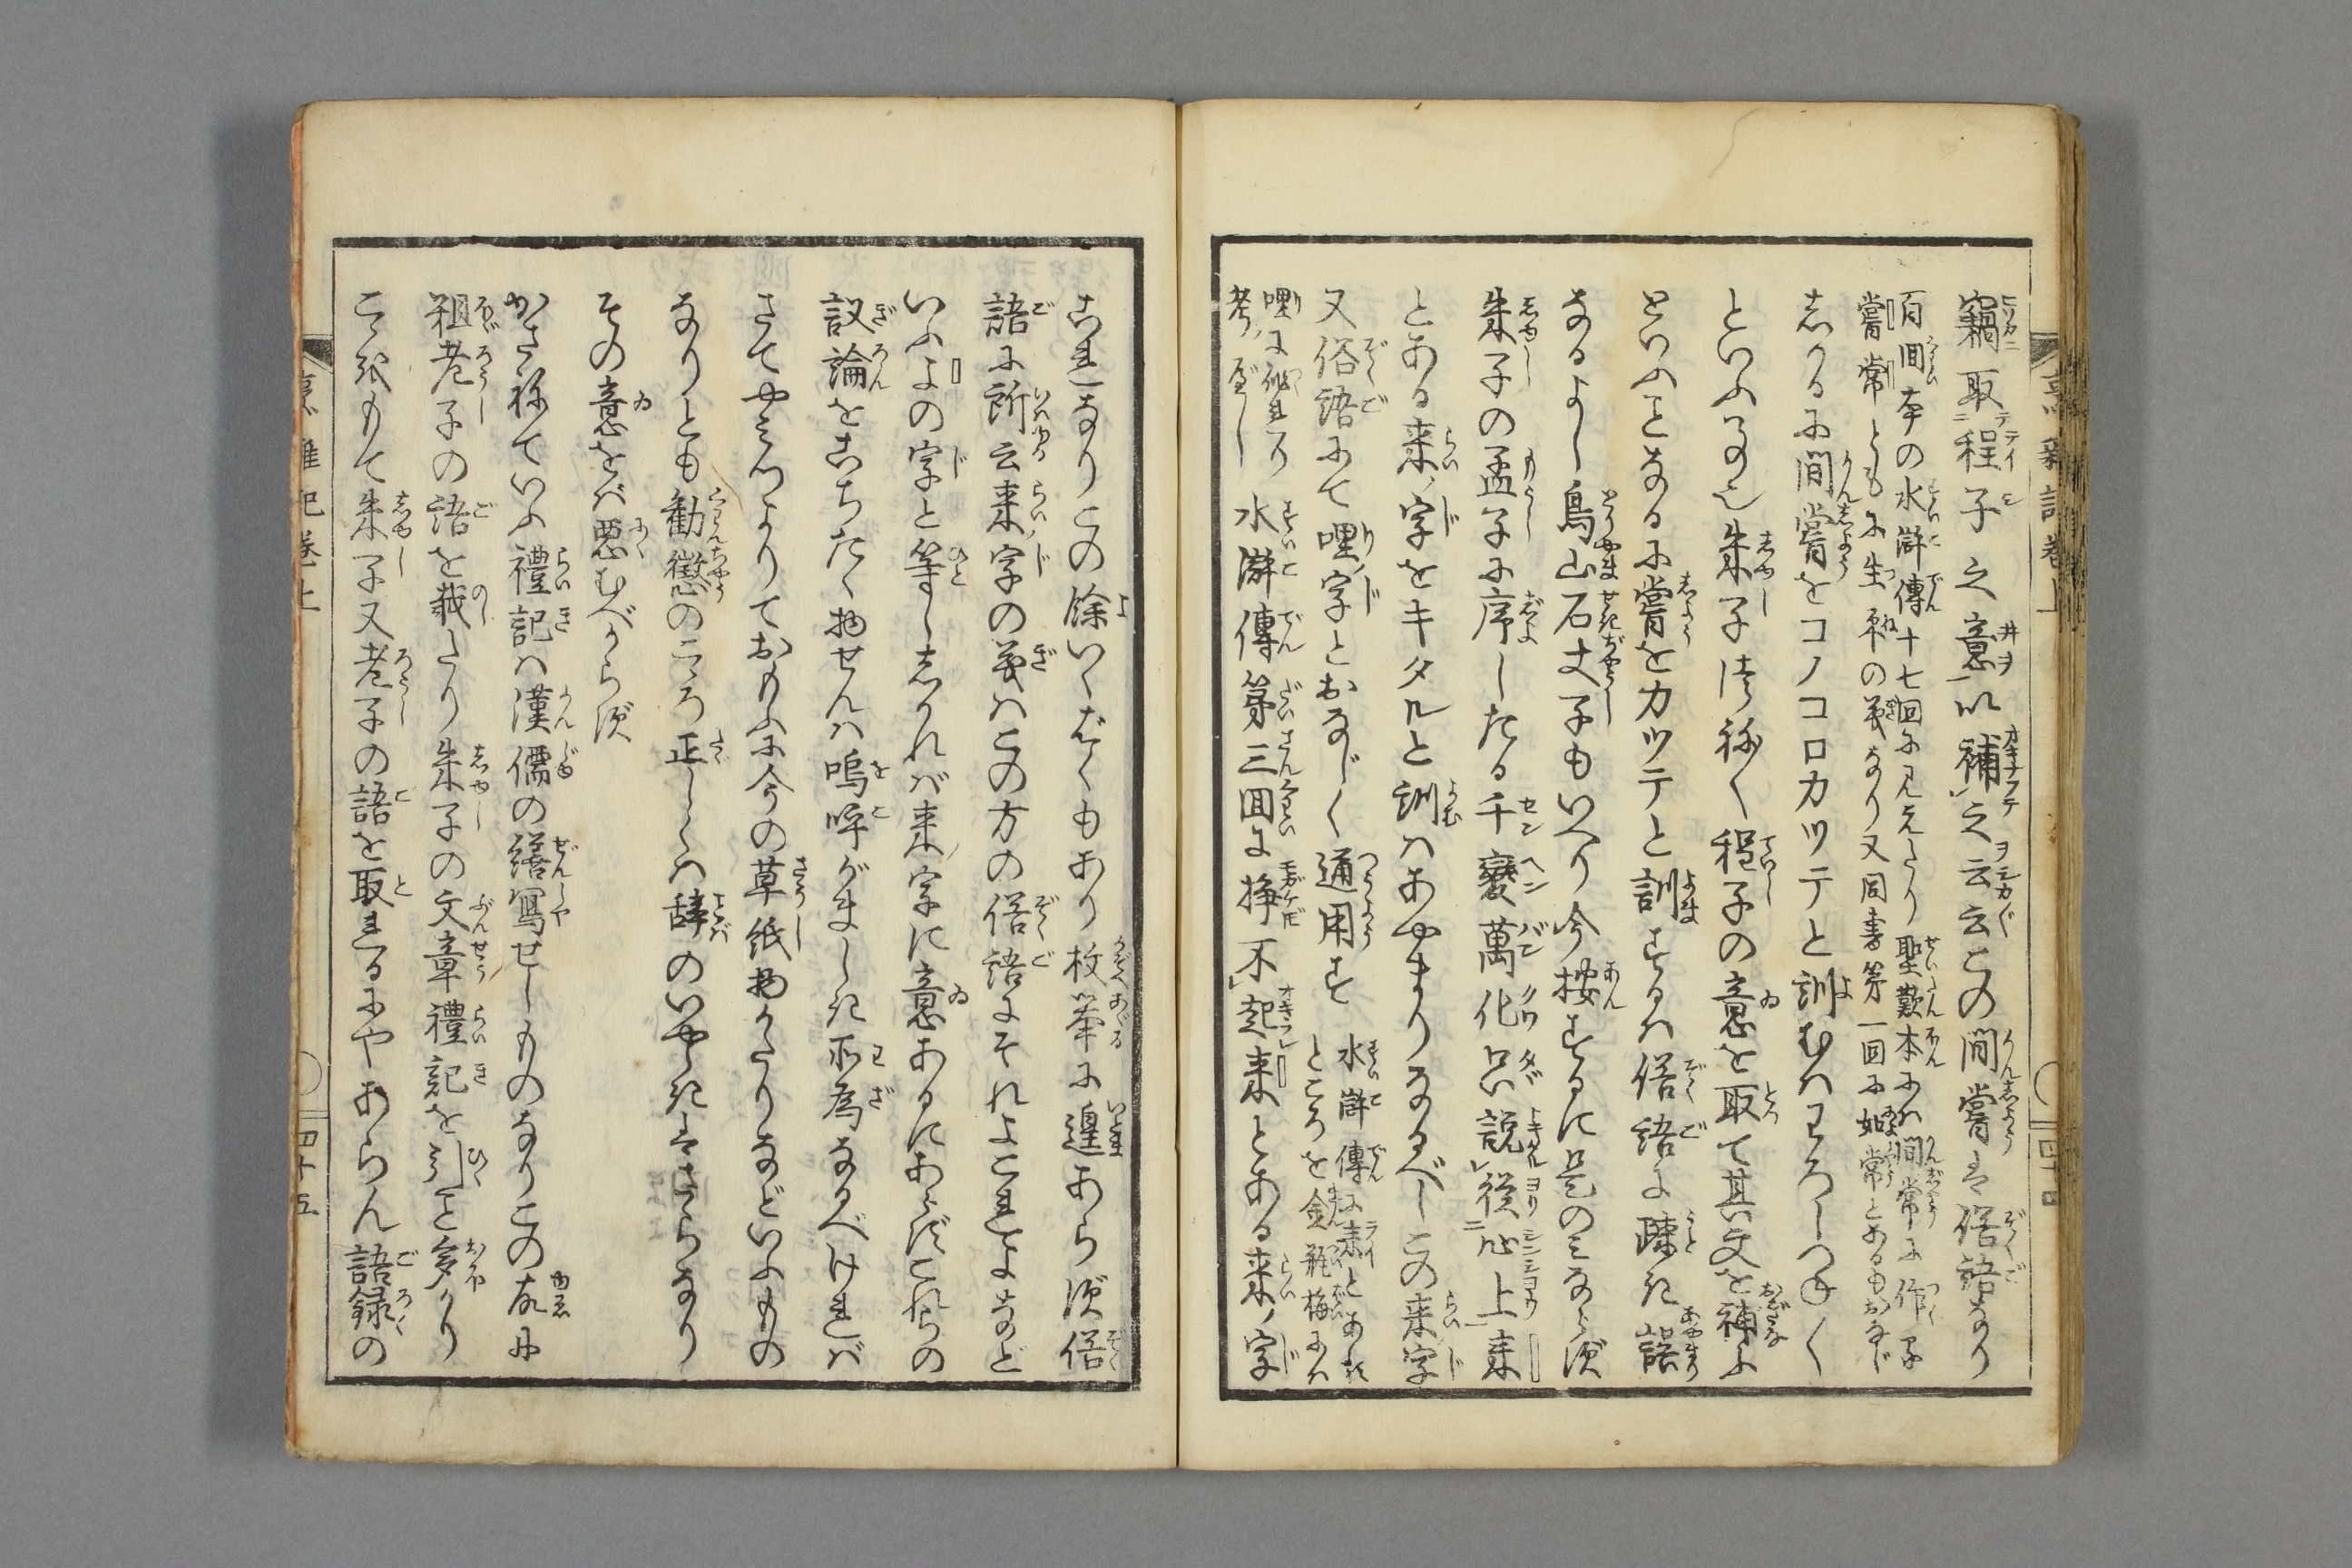 竊取程子之意以補之云云この間嘗は俗語なり
百回本の水滸傳十七回に見えたり聖歎本には間常に作る
嘗常ともに生平の義なり又同書第一回に如常とあるもおなじ
しかるに間嘗をコノコロカツテと訓むはわろしつねく
といふ事也朱子つねく程子の意を取て其文を補ふ
といふことなるに嘗をカツテと訓するは俗語に疎き誤
なるよし鳥山石丈子もいへり今按ずるに是のみならず
朱子の孟子に序したる千變萬化只説從心上來
とある来ノ字をキタルと訓はあやまりなるべしこの来ノ字
又俗語にて哩ノ字とおなじく通用す
水滸傳に来とあるところを金瓶梅には
哩に作れり
考フべし
水滸傳第三回に掙不起来とある来ノ字
これなりこの餘いくばくもあり枚挙に遑あらず俗
語に所云来ノ字の義はこの方の俗語にそれよこれよなど
いふよの字と等ししかれば来ノ字に意あるにあらずこれらの
議論をこちたく物せんは嗚呼がましき所為なるべけれバ
さてやみつよりておもふに今の草紙物かたりなどいふもの
なりとも勧懲のこころ正しくは辞のいやしきはさらなり
その意をバ悪むべからず
かさねていふ禮記は漢儒の繕寫せしものなりこの故に
祖老子の語を載たり朱子の文章禮記を引こと多かり
こゝをもて朱子又老子の語を取れるにやあらん語録の
四十五